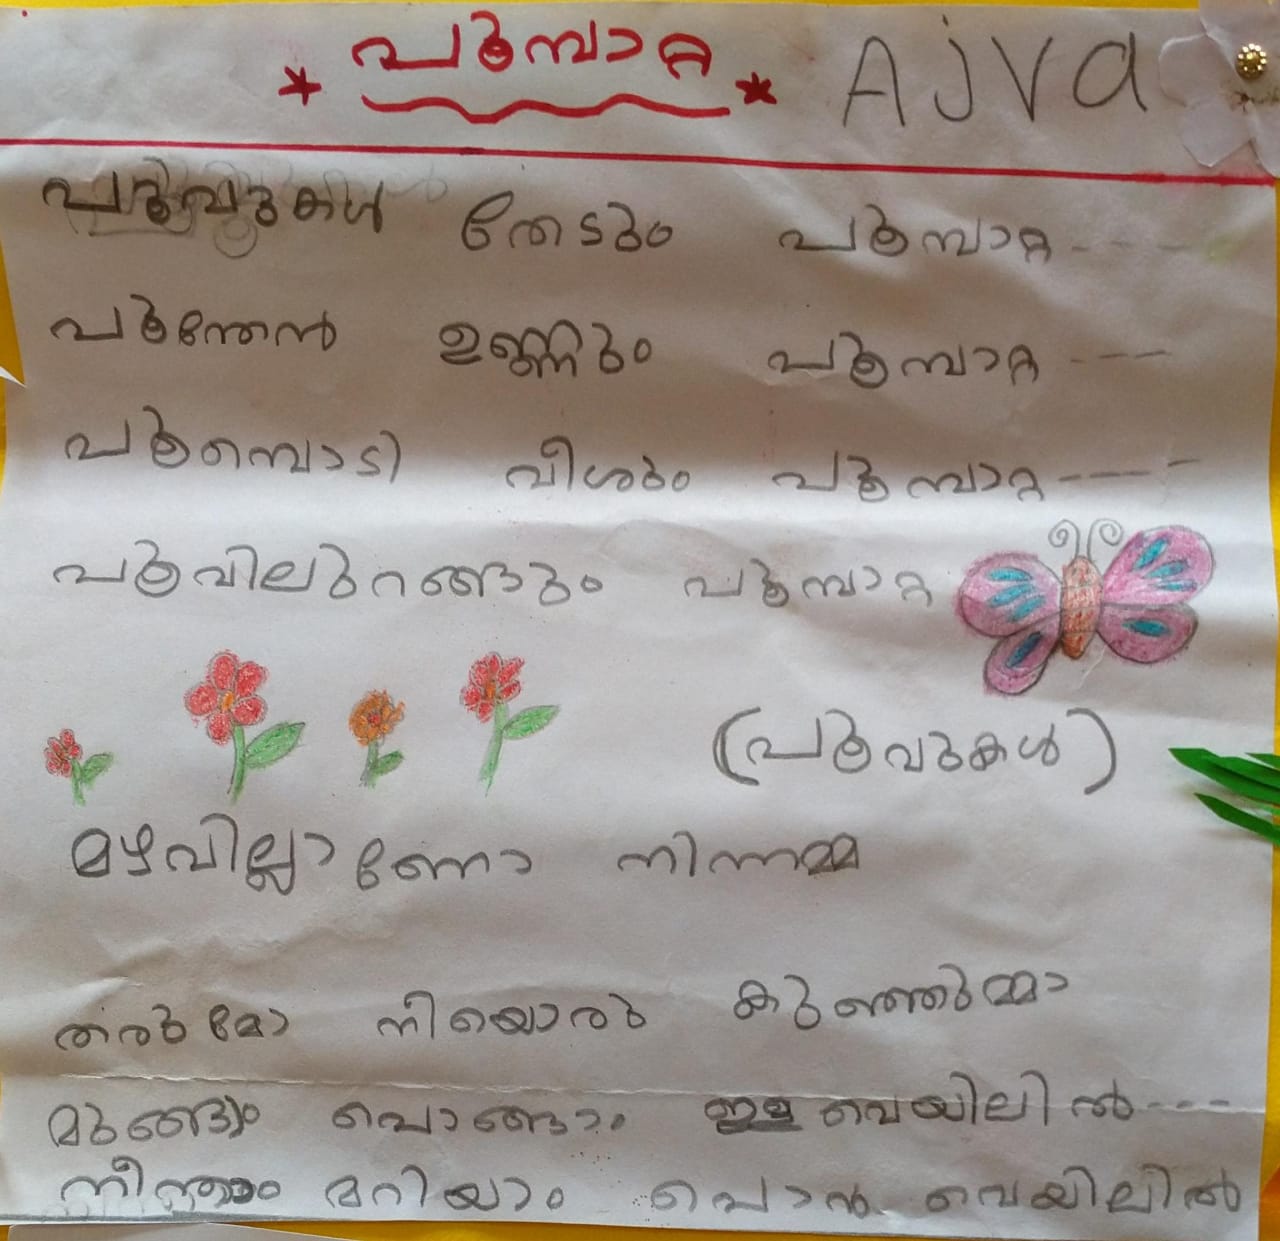 പൂമ്പാറ്റ Ajva
പൂവുകൾ തേടും പൂമ്പാറ്റ - - - -
പൂന്തേൻ ഉണ്ണും പൂമ്പാറ്റ - - -
പൂമ്പൊടി വീശും പൂമ്പാറ്റ - - - -
പൂവിലുറങ്ങും പൂമ്പാറ്റ
(പൂവുകൾ)
മഴവില്ലാണോ നിന്നമ്മ
തരുമോ നീയൊരു കുഞ്ഞുമ്മാ
മുങ്ങാം പൊങ്ങാം ഇള വെയിലിൽ - - -
നീന്താം മറിയാം പൊൻ വെയിലിൽ